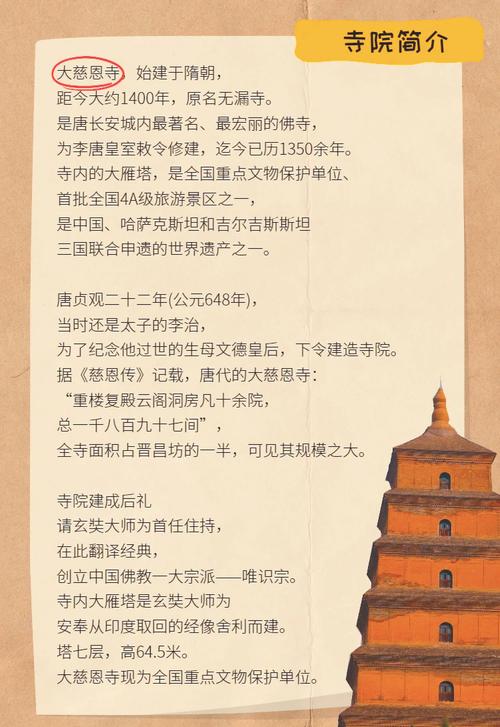 寺院简介
大慈恩寺，始建于隋朝，
距今大约1400年，原名无漏寺。
是唐长安城内最著名、最宏丽的佛寺，
为李唐皇室敕令修建，迄今已历1350余年。
寺内的大雁塔，是全国重点文物保护单位、
首批全国4A级旅游景区之一，
是中国、哈萨克斯坦和吉尔吉斯斯坦
三国联合申遗的世界遗产之一。
唐贞观二十二年(公元648年)，
当时还是太子的李治，
为了纪念他过世的生母文德皇后，下令建造寺院。
据《慈恩传》记载，唐代的大慈恩寺：
“重楼复殿云阁洞房凡十余院，
总一千八百九十七间”，
全寺面积占晋昌坊的一半，可见其规模之大。
寺院建成后礼
请玄奘大师为首任住持，
在此翻译经典，
创立中国佛教一大宗派——唯识宗。
寺内大雁塔是玄奘大师为
安奉从印度取回的经像舍利而建。
塔七层，高64.5米。
大慈恩寺现为全国重点文物保护单位。